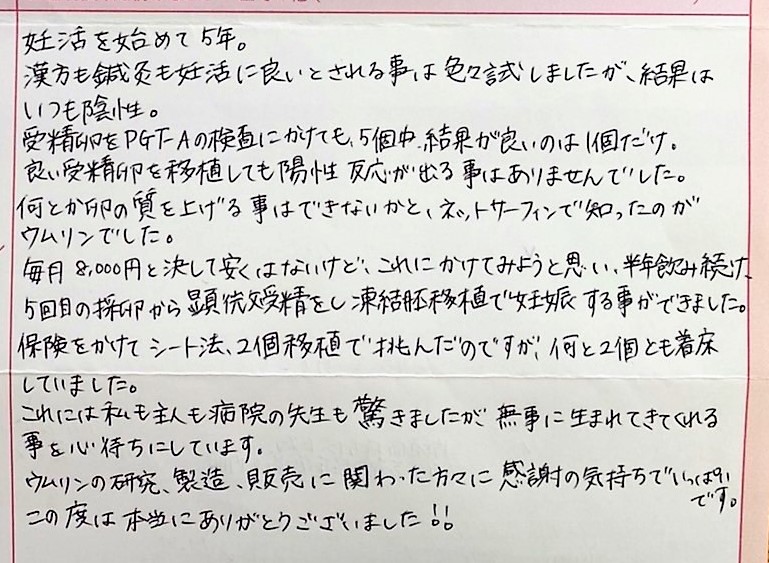 妊活を始めて5年。
漢方も鍼灸も妊活に良いとされる事は色々試しましたが、結果は
いつも陰性。
受精卵をPGT-Aの検査にかけても、5個中、結果が良いのは1個だけ。
良い受精卵を移植しても陽性反応が出る事はありませんでした。
何とか卵の質を上げる事はできないかと、ネットサーフィンで知ったのが
ウムリンでした。
毎月8,000円と決して安くはないけど、これにかけてみようと思い、半年飲み続け、
5回目の採卵から顕微受精をし凍結胚移植で妊娠する事ができました。
保険をかけてシート法、2個移植で挑んだのですが、何と2個とも着床
していました。
これには私も主人も病院の先生も驚きましたが無事に生まれてきてくれる
事を心待ちにしています。
ウムリンの研究、製造、販売に関わった方々に感謝の気持ちでいっぱい
です。
この度は本当にありがとうございました!!